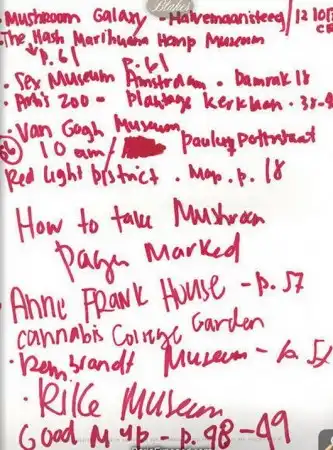 Blakes
Mushroom Galaxy - Halvemaansteeg / 12 1017
The Hash Marihuana Hemp Museum
p. 61
p. 61
Sex Museum Amsterdam . Damrak 18
Artis Zoo - Plantage Kerklaan . 38-
Van Gogh Museum
10 am / Paulus Potterstraat
Red Light District . Map . p. 18
How to take Mushroom
Pages Marked
Anne Frank House - p. 57
Cannabis College Garden
Rembrandt Museum - p. 5
Rike Museum
Good Map - p. 98-99